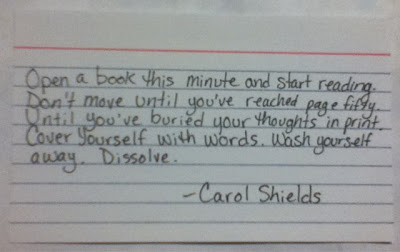 Open a book this minute and start reading.
Don't move until you've reached page fifty.
Until you've buried your thoughts in print.
Cover yourself with words. Wash yourself
away. Dissolve.
-Carol Shields